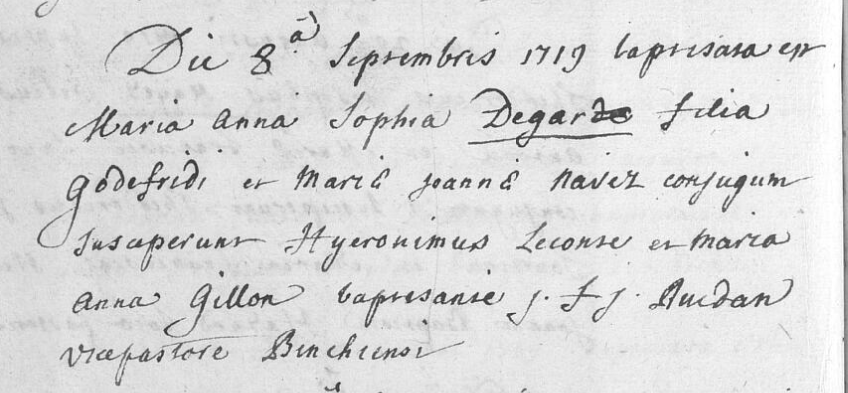 Die 8.ª Septembris 1719 baptisata est
Maria Anna Sophia Degarde filia
Godefridi et Mariæ Joannæ Navez conjugum
susceperunt Hyeronimus Leconte et Maria
Anna Gillon baptisante J. F J.
vicepastore Binchiensi